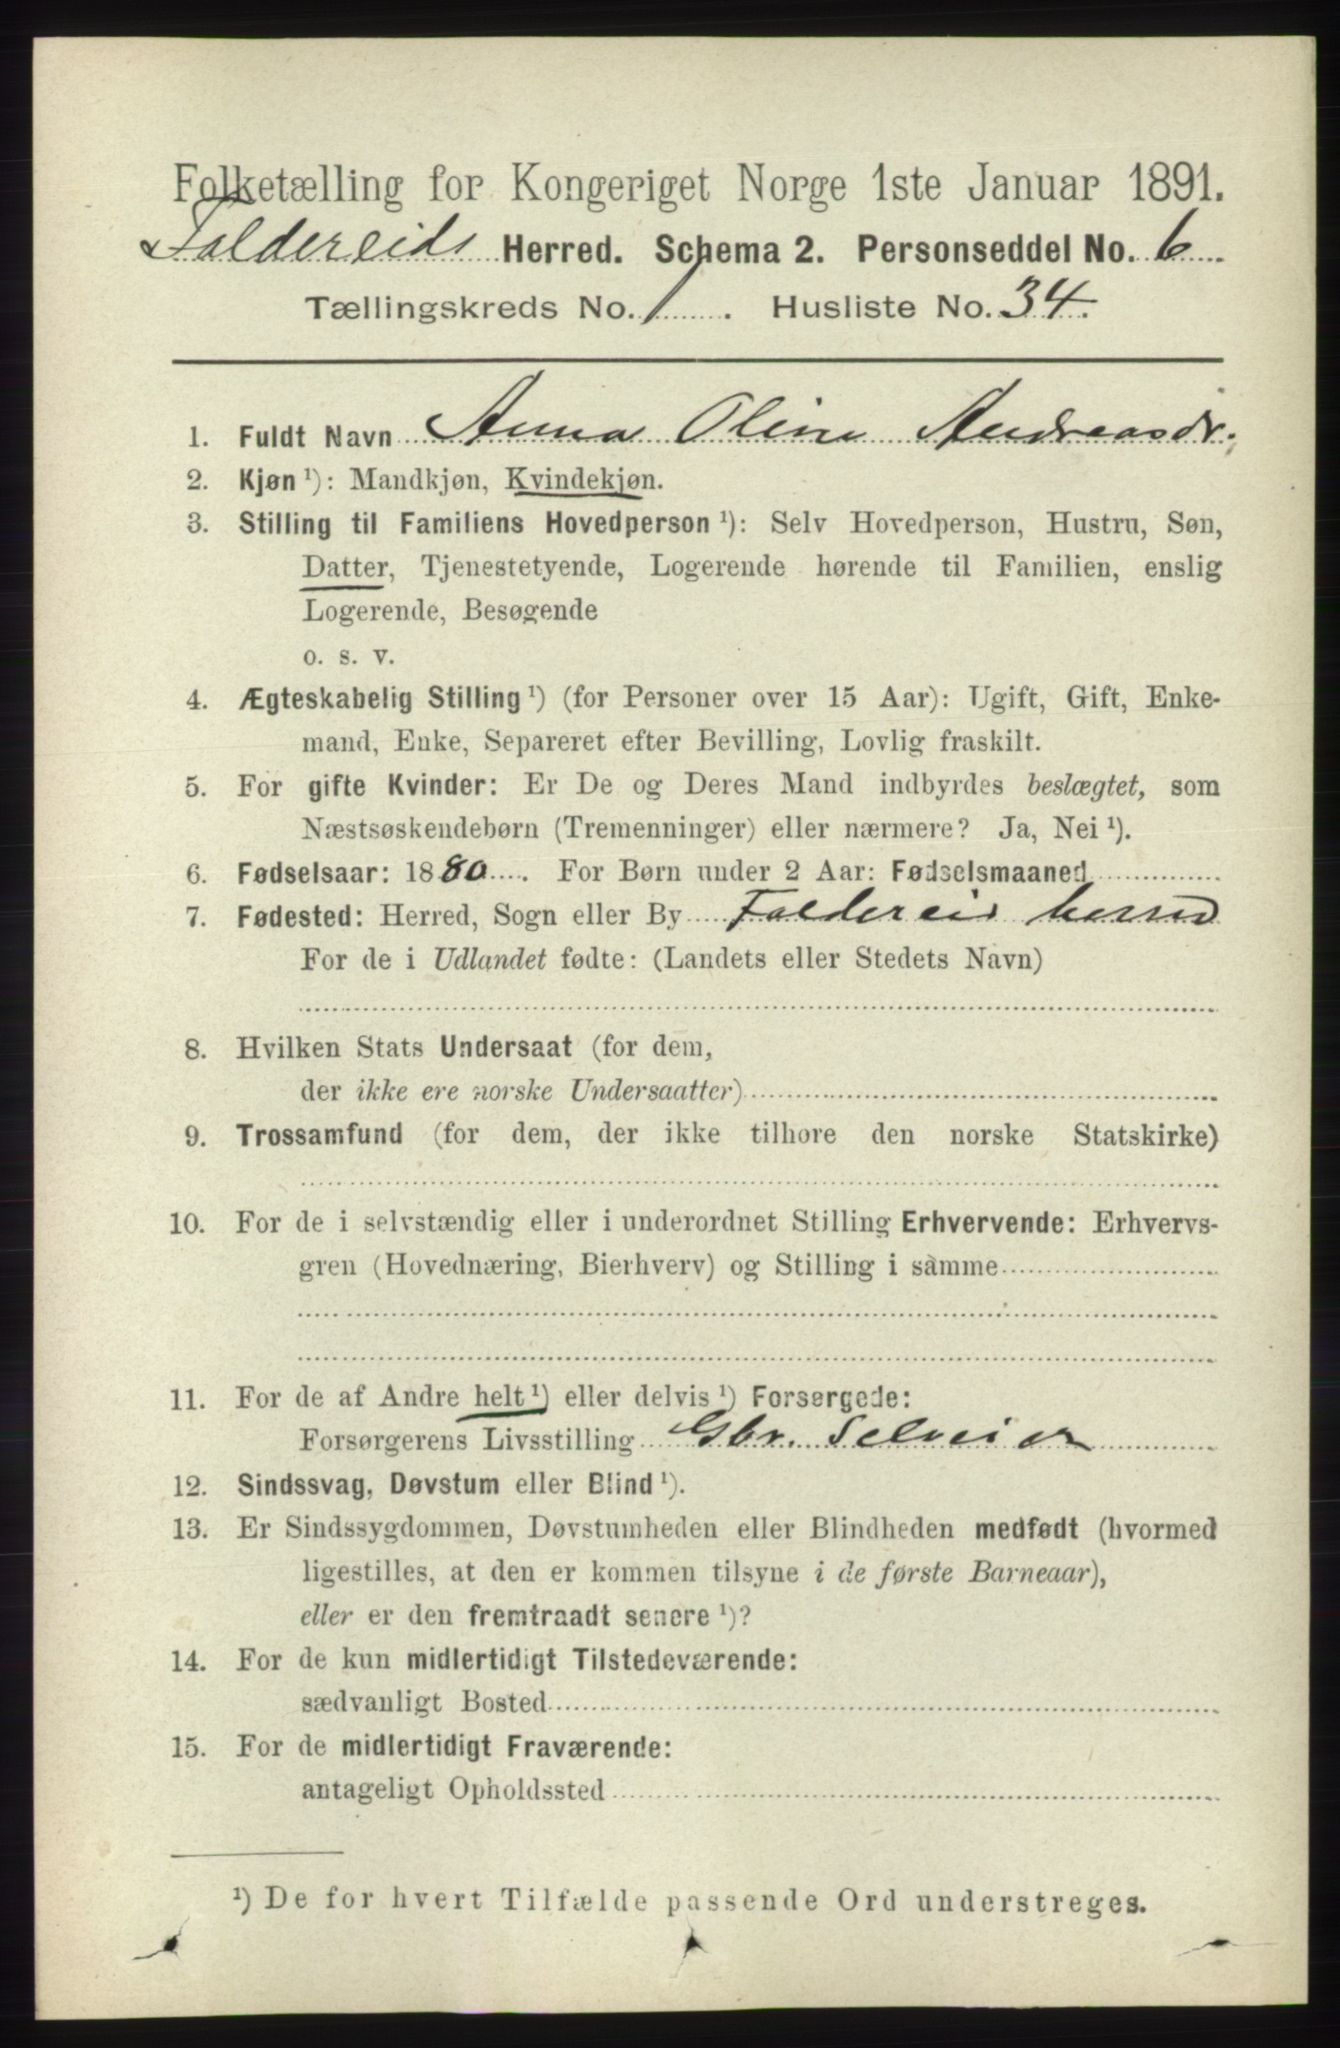 Folketælling for Kongeriget Norge 1ste Januar 1891.
Foldereids Herred. Schema 2. Personseddel No. 6
Tællingskreds No. 1. Husliste No. 34.
1. Fuldt Navn Anna Oline Andreasdr.
2. Kjøn ¹): Mandkjøn, Kvindekjøn.
3. Stilling til Familiens Hovedperson ¹): Selv Hovedperson, Hustru, Søn,
Datter, Tjenestetyende, Logerende hørende til Familien, enslig
Logerende, Besøgende
o. s. v.
4. Ægteskabelig Stilling ¹) (for Personer over 15 Aar): Ugift, Gift, Enke-
mand, Enke, Separeret efter Bevilling, Lovlig fraskilt.
5. For gifte Kvinder: Er De og Deres Mand indbyrdes beslægtet, som
Næstsøskendebørn (Tremenninger) eller nærmere? Ja, Nei ¹).
6. Fødselsaar: 1880. For Børn under 2 Aar: Fødselsmaaned
7. Fødested: Herred, Sogn eller By Foldereid herred
For de i Udlandet fødte: (Landets eller Stedets Navn)
8. Hvilken Stats Undersaat (for dem,
der ikke ere norske Undersaatter)
9. Trossamfund (for dem, der ikke tilhøre den norske Statskirke)
10. For de i selvstændig eller i underordnet Stilling Erhvervende: Erhvervs-
gren (Hovednæring, Bierhverv) og Stilling i samme
11. For de af Andre helt ¹) eller delvis ¹) Forsørgede:
Forsørgerens Livsstilling Gbr. Selveier
12. Sindssvag, Døvstum eller Blind ¹).
13. Er Sindssygdommen, Døvstumheden eller Blindheden medfødt (hvormed
ligestilles, at den er kommen tilsyne i de første Barneaar),
eller er den fremtraadt senere ¹)?
14. For de kun midlertidigt Tilstedeværende:
sædvanligt Bosted
15. For de midlertidigt Fraværende:
antageligt Opholdssted
¹) De for hvert Tilfælde passende Ord understreges.